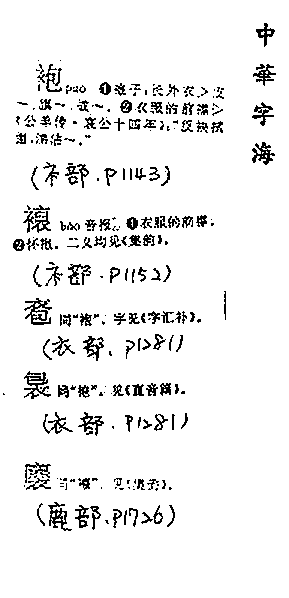 中華字海
袍 páo ❶袍子;长外衣>皮
~.旗~.战~.❷衣服的前襟>
《公羊传·哀公十四年》:“反袂拭
面,涕沾~。”
(衤部.P1143)
bào 音报. ❶衣服的前襟.
❷怀抱。二义均见《集韵》。
(衤部.P1152)
同“袍”。字见《字汇补》。
(衣部.P1281)
同“袍”。见《直音篇》。
(衣部.P1281)
同 见
(鹿部.P1726)